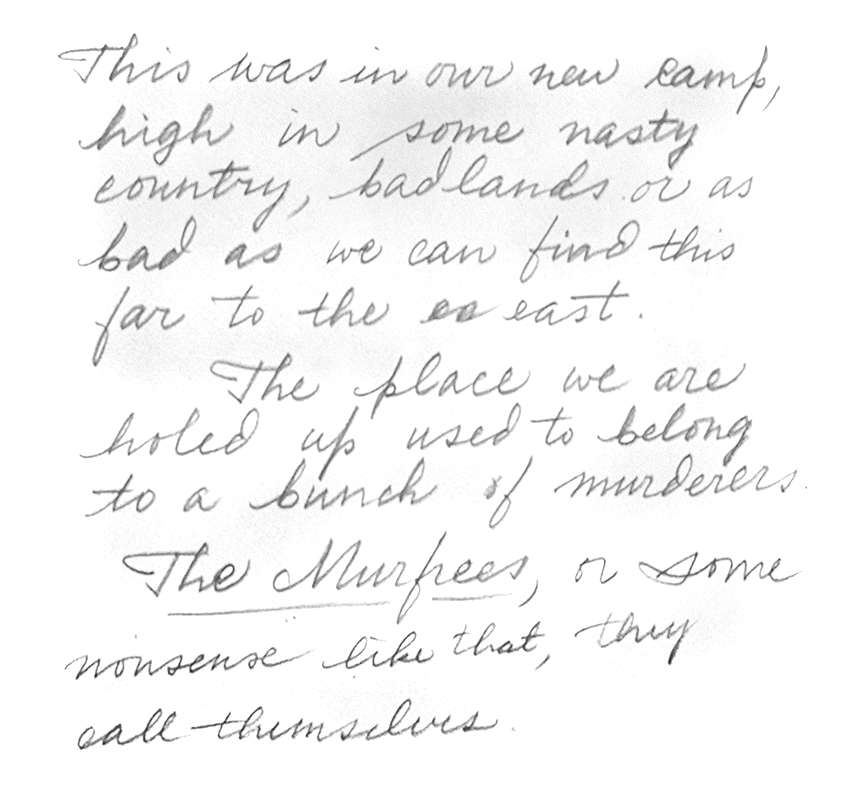 This was in our new camp,
high in some nasty
country, badlands or as
bad as we can find this
far to the east.
The place we are
holed up used to belong
to a bunch of murderers.
The Murfrees, or some
nonsense like that, they
call themselves.